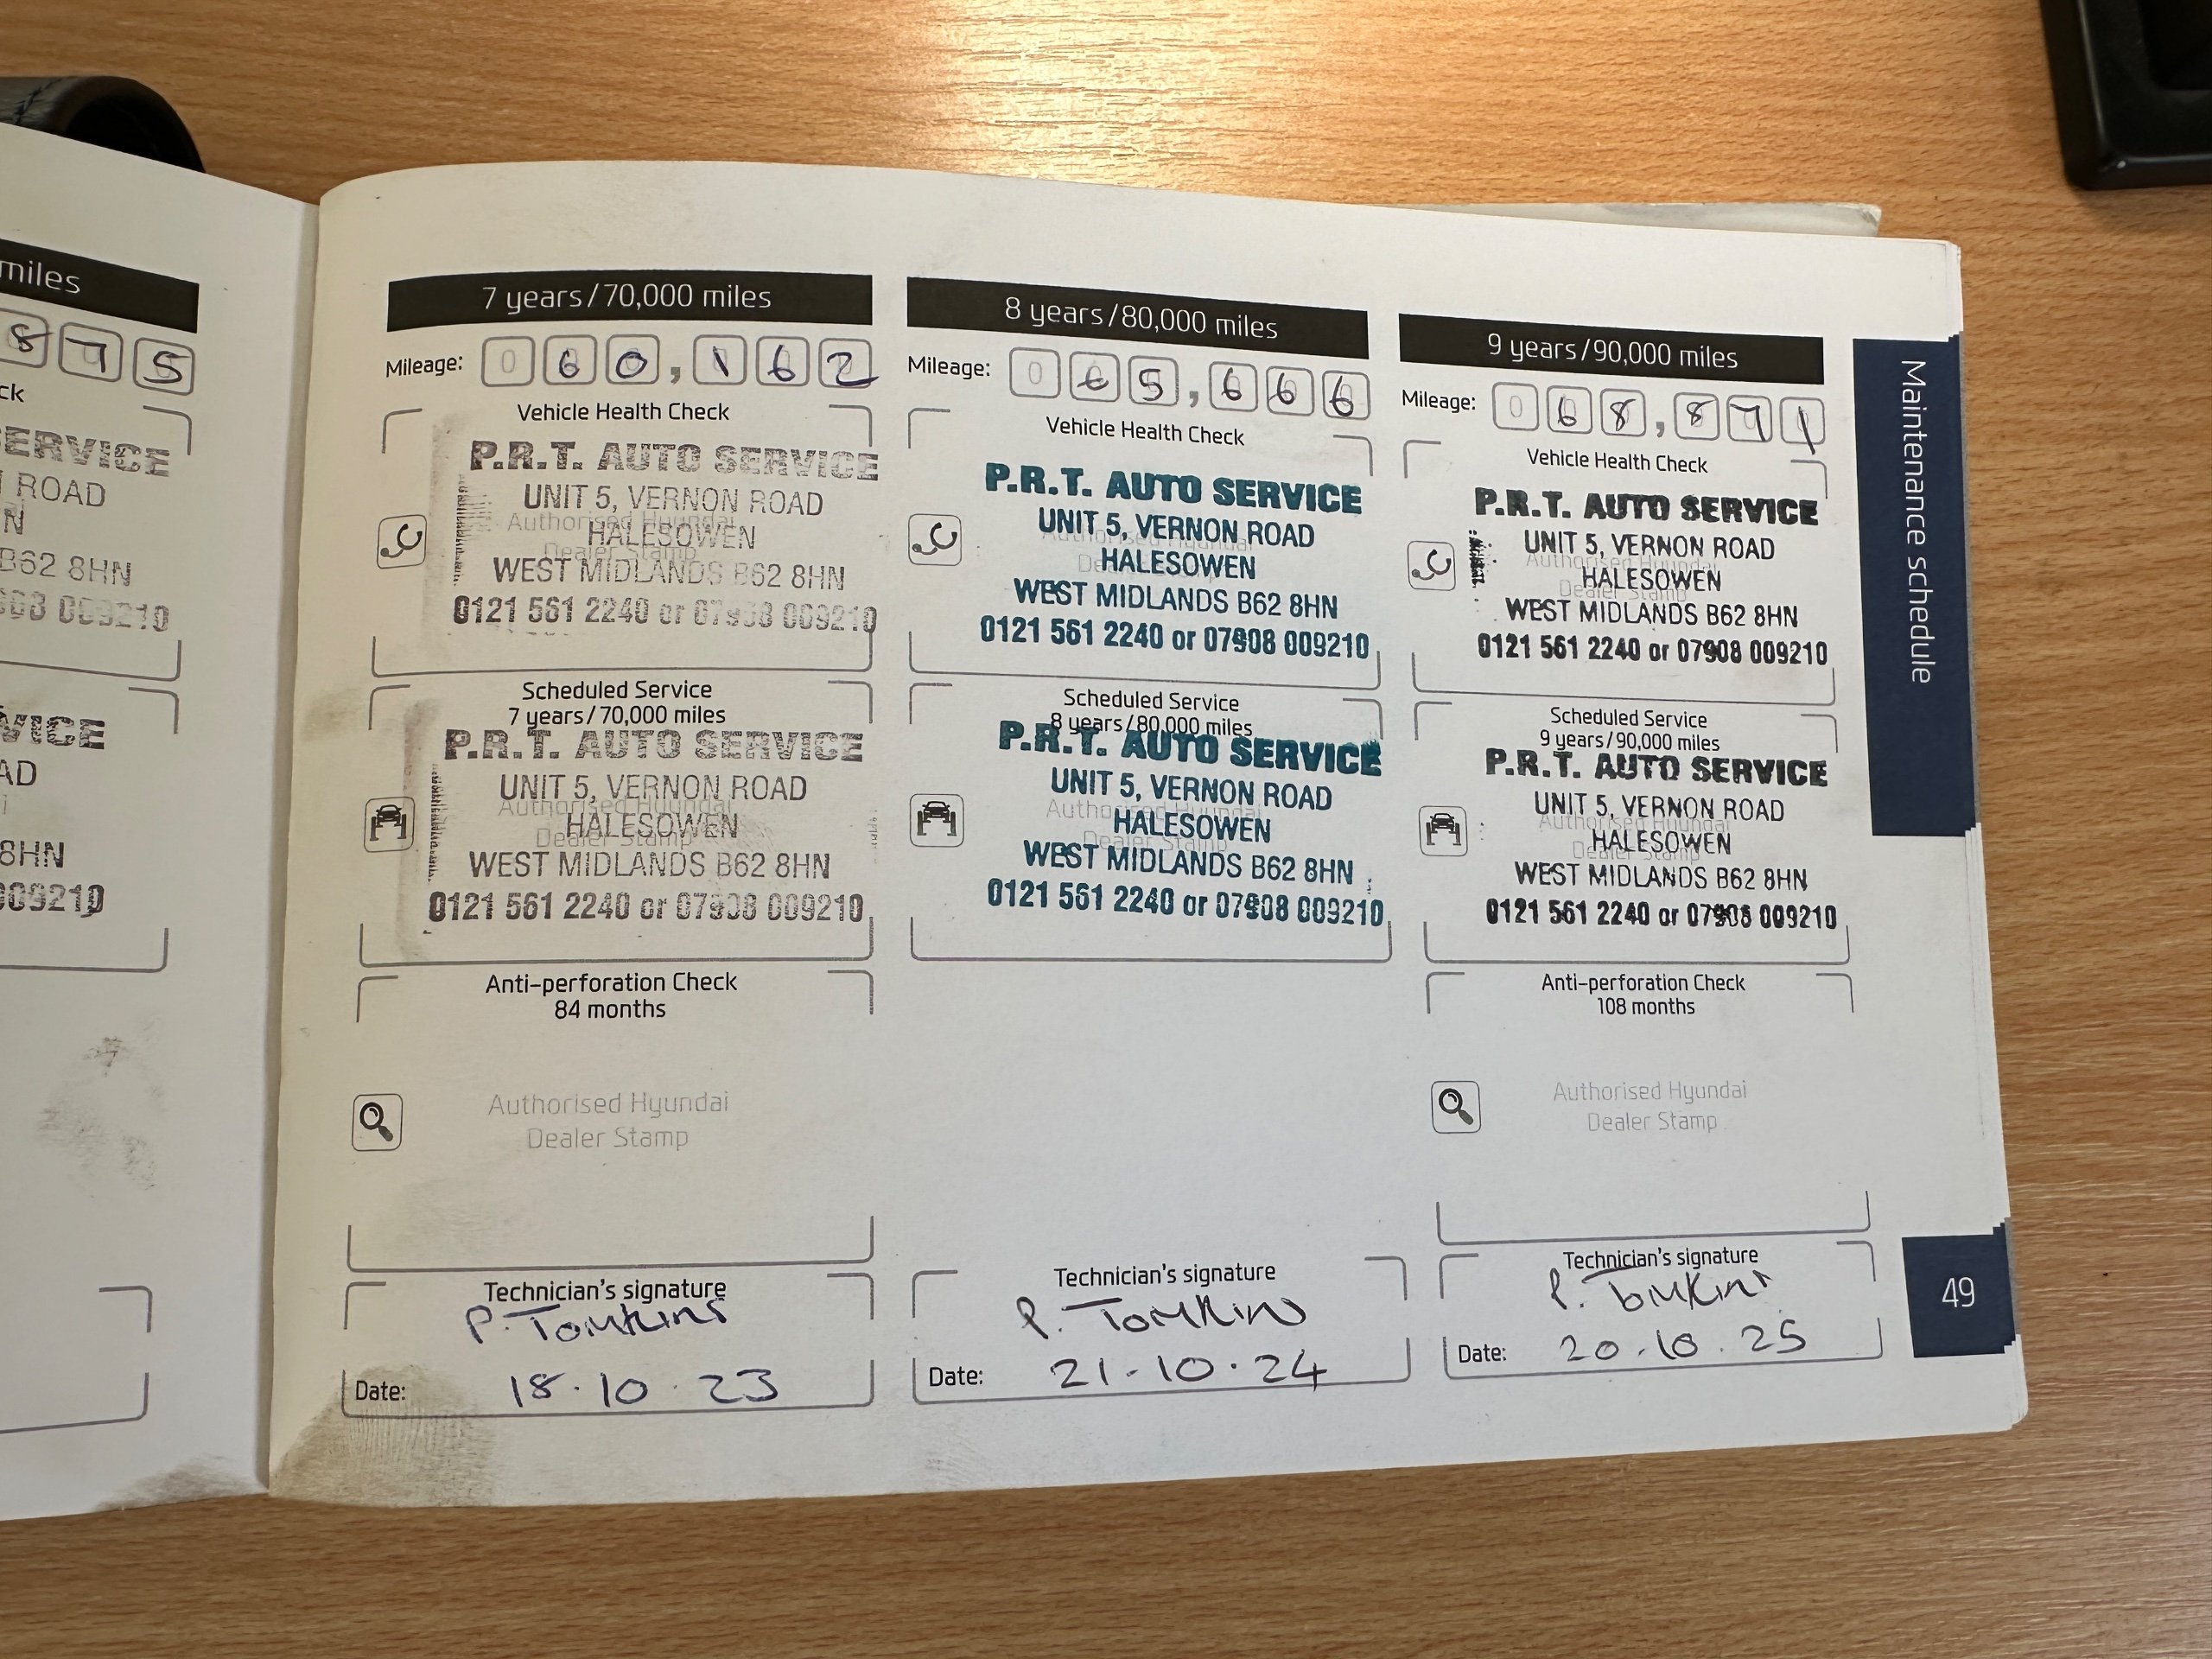 miles
8 7 5
ck
SERVICE
ROAD
N
B62 8HN
009210
VICE
AD
8HN
009210
7 years/70,000 miles
Mileage: 0 6 0 , 1 6 2
Vehicle Health Check
P.R.T. AUTO SERVICE
UNIT 5, VERNON ROAD
Authorised Hyundai
HALESOWEN
Dealer Stamp
WEST MIDLANDS B62 8HN
0121 561 2240 or 07908 009210
Scheduled Service
7 years/70,000 miles
P.R.T. AUTO SERVICE
UNIT 5, VERNON ROAD
Authorised Hyundai
HALESOWEN
Dealer Stamp
WEST MIDLANDS B62 8HN
0121 561 2240 or 07908 009210
Anti-perforation Check
84 months
Authorised Hyundai
Dealer Stamp
Technician's signature
P. Tomkins
Date: 18.10.23
8 years/80,000 miles
Mileage: 0 6 5 , 6 6 6
Vehicle Health Check
P.R.T. AUTO SERVICE
UNIT 5, VERNON ROAD
Authorised Hyundai
HALESOWEN
Dealer Stamp
WEST MIDLANDS B62 8HN
0121 561 2240 or 07908 009210
Scheduled Service
8 years/80,000 miles
P.R.T. AUTO SERVICE
UNIT 5, VERNON ROAD
Authorised Hyundai
HALESOWEN
Dealer Stamp
WEST MIDLANDS B62 8HN
0121 561 2240 or 07908 009210
Technician's signature
P. Tomkins
Date: 21.10.24
9 years/90,000 miles
Mileage: 0 6 8 , 8 7 1
Vehicle Health Check
P.R.T. AUTO SERVICE
UNIT 5, VERNON ROAD
Authorised Hyundai
HALESOWEN
Dealer Stamp
WEST MIDLANDS B62 8HN
0121 561 2240 or 07908 009210
Scheduled Service
9 years/90,000 miles
P.R.T. AUTO SERVICE
UNIT 5, VERNON ROAD
Authorised Hyundai
HALESOWEN
Dealer Stamp
WEST MIDLANDS B62 8HN
0121 561 2240 or 07908 009210
Anti-perforation Check
108 months
Authorised Hyundai
Dealer Stamp
Technician's signature
P. Tomkins
Date: 20.10.25
Maintenance schedule
49